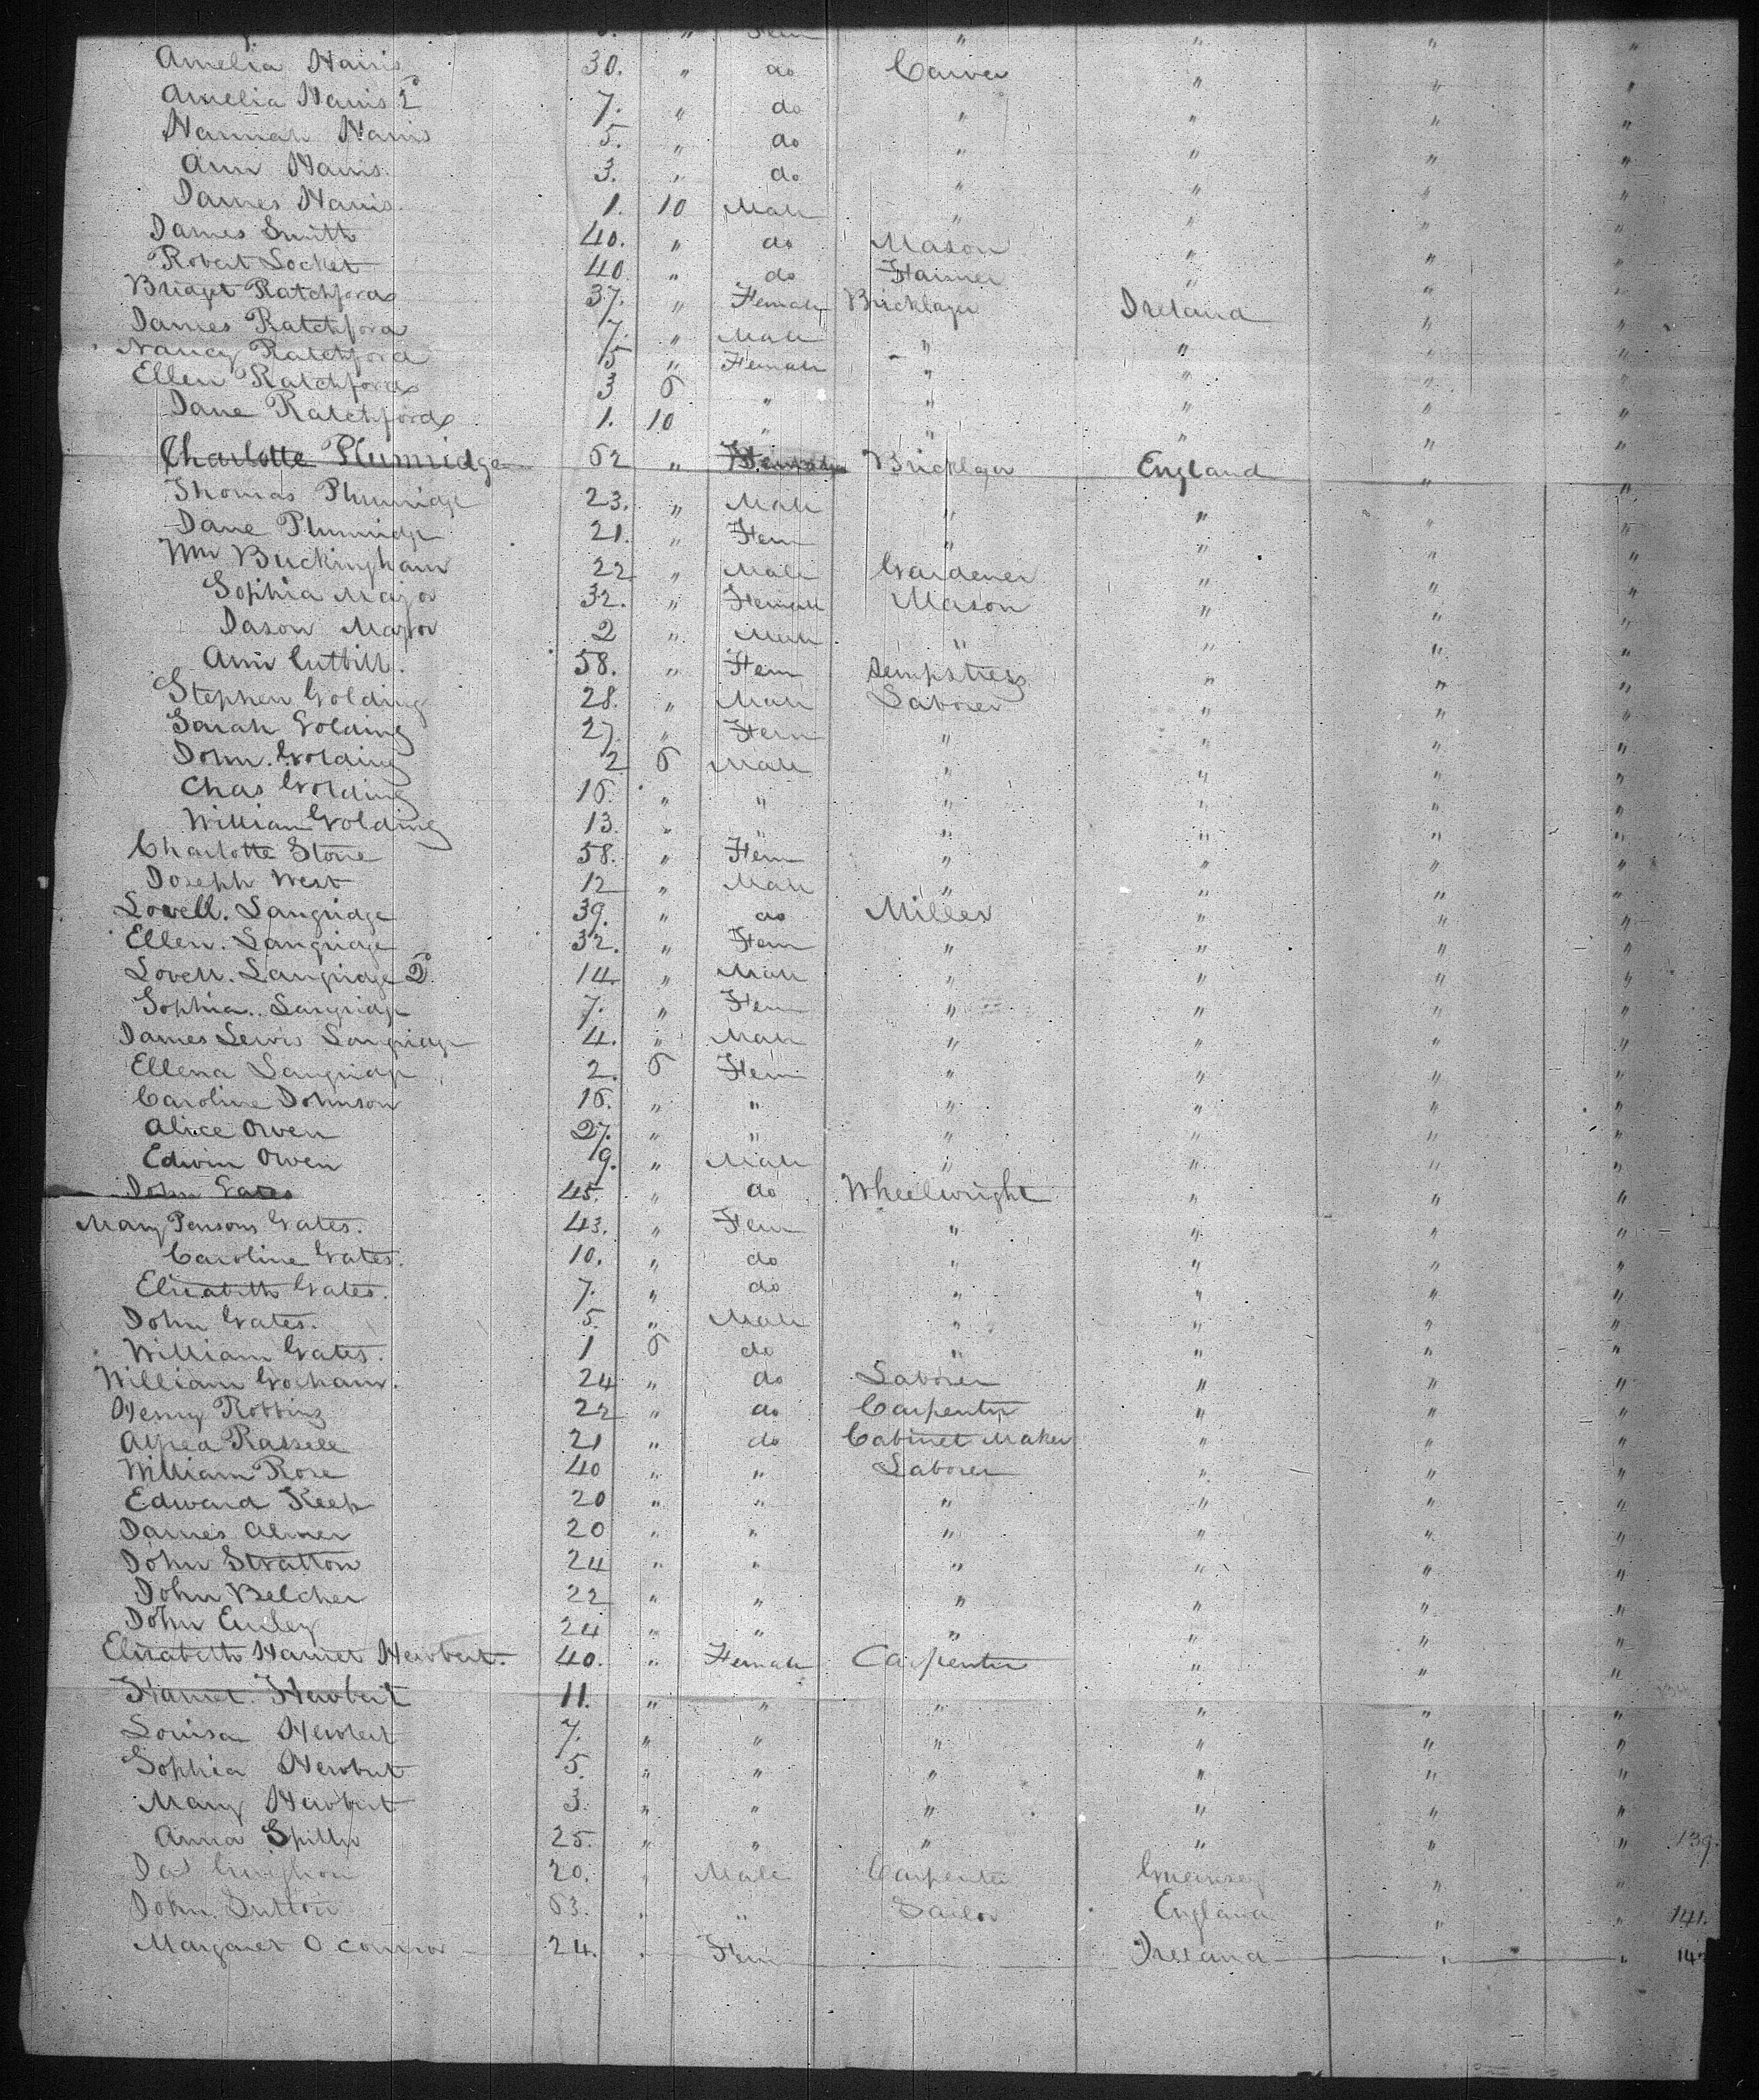 " Fem " " " "
Amelia Harris 30. " do Carver " " "
Amelia Harris 2d 7. " do " " " "
Hannah Harris 5. " do " " " "
Ann Harris. 3. " do " " " "
James Harris. 1. 10 Male " " " "
James Smith 40. " do Mason " " "
Robert Socket 40 " do Farmer " " "
Bridget Ratchford 37. " Female Bricklayer Ireland " "
James Ratchford 7. " Male " " " "
Nancy Ratchford 5 " Female " " " "
Ellen Ratchford 3 6 " " " " "
Jane Ratchford 1. 10 " " " " "
Charlotte Plumridge 62 " Female Bricklayer England " "
Thomas Plumridge 23. " Male " " " "
Jane Plumridge 21. " Fem " " " "
Wm Buckingham 22 " Male Gardener " " "
Sophia Major 32. " Female Mason " " "
Jason Major 2 " Male " " " "
Ann Cutbill. 58. " Fem Sempstress " " "
Stephen Golding 28. " Male Laborer " " "
Sarah Golding 27. " Fem " " " "
John. Golding 2 6 Male " " " "
Chas Golding 16. " " " " " "
William Golding 13. " " " " " "
Charlotte Stone 58. " Fem " " " "
Joseph West 12 " Male " " " "
Lovell. Langridge 39. " do Miller " " "
Ellen. Langridge 32. " Fem " " " "
Lovell. Langridge 2d 14. " Male " " " "
Sophia.. Langridge 7. " Fem " " " "
James Lewis Langridge 4. " Male " " " "
Ellena Langridge 2. 6 Fem " " " "
Caroline Johnson 16. " " " " " "
Alice Owen 27. " " " " " "
Edwin Owen 9. " Male " " " "
John Gates 45. " do Wheelwright " " "
Mary Persons Gates. 43. " Fem " " " "
Caroline Gates. 10. " do " " " "
Elizabeth Gates. 7. " do " " " "
John Gates. 5. " Male " " " "
William Gates. 1 6 do " " " "
William Gorham. 24 " do Laborer " " "
Henry Robbins 22 " do Carpenter " " "
21 " do Cabinet Maker " " "
William Rose 40 " " Laborer " " "
Edward Keep 20 " " " " " "
James Almer 20 " " " " " "
John Stratton 24 " " " " " "
John Belcher 22 " " " " " "
John 24 " " " " " "
Elizabeth Harriet Hewbert. 40. " Female Carpenter " " "
Harriet. Hewbert 11. " " " " " "
Louisa Hewbert 7. " " " " " "
Sophia Hewbert 5. " " " " " "
Mary Hewbert 3. " " " " " "
Anna Spiller 25. " " " " " " 139.
20. " Male Carpenter Guernsey " "
John Sutton 63. " " Sailor England " " 141.
Margaret O Connor 24. " Fem Ireland " " 142